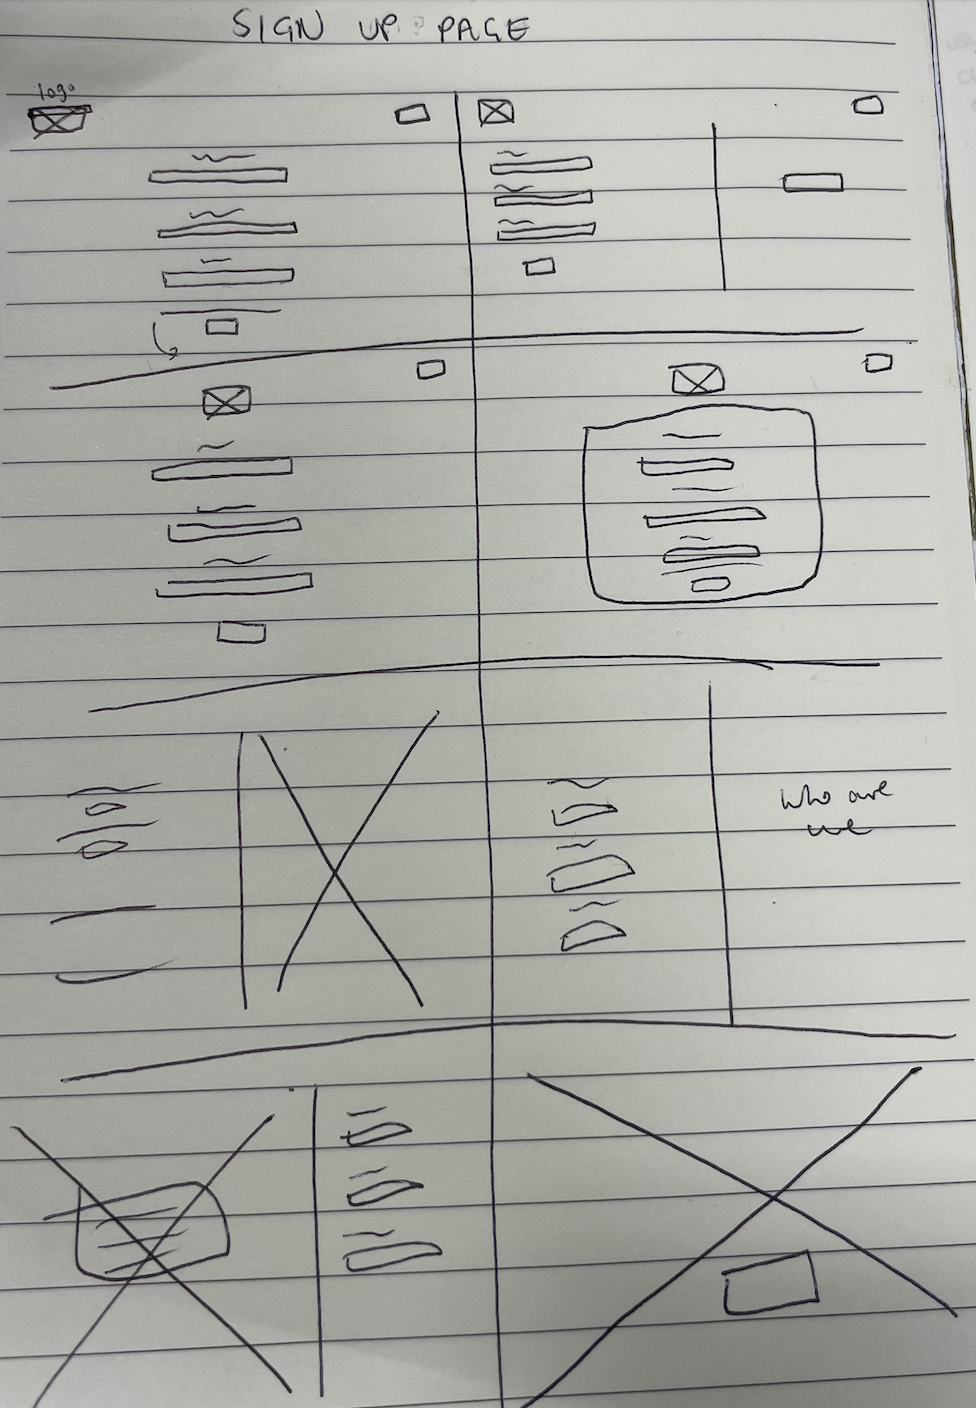 SIGN UP PAGE
logo
who are
we